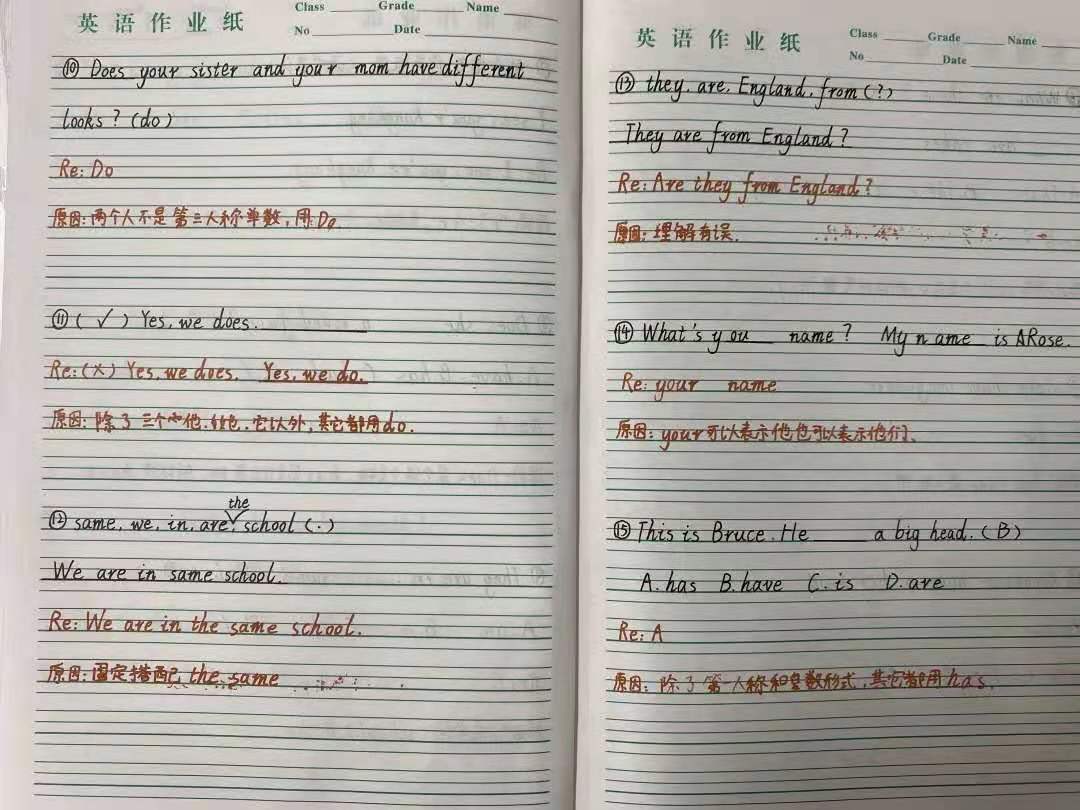 英语作业纸
Class Grade Name
No Date
⑩ Does your sister and your mom have different
looks? (do)
Re: Do
原因: 两个人不是第三人称单数, 用Do.
⑪ ( √ ) Yes, we does.
Re: (×) Yes, we does. Yes, we do.
原因: 除了三个他.她.它以外, 其它都用do.
the
⑫ same, we, in, are, school (.)
We are in same school.
Re: We are in the same school.
原因: 固定搭配 the same
英语作业纸
Class Grade Name
No Date
⑬ they, are, England, from (?)
They are from England?
Re: Are they from England?
原因: 理解有误.
⑭ What's you name? My name is ARose.
Re: your name
原因: your可以表示他也可以表示他们.
⑮ This is Bruce. He a big head. (B)
A. has B. have C. is D. are
Re: A
原因: 除了第一人称和复数形式, 其它都用has.